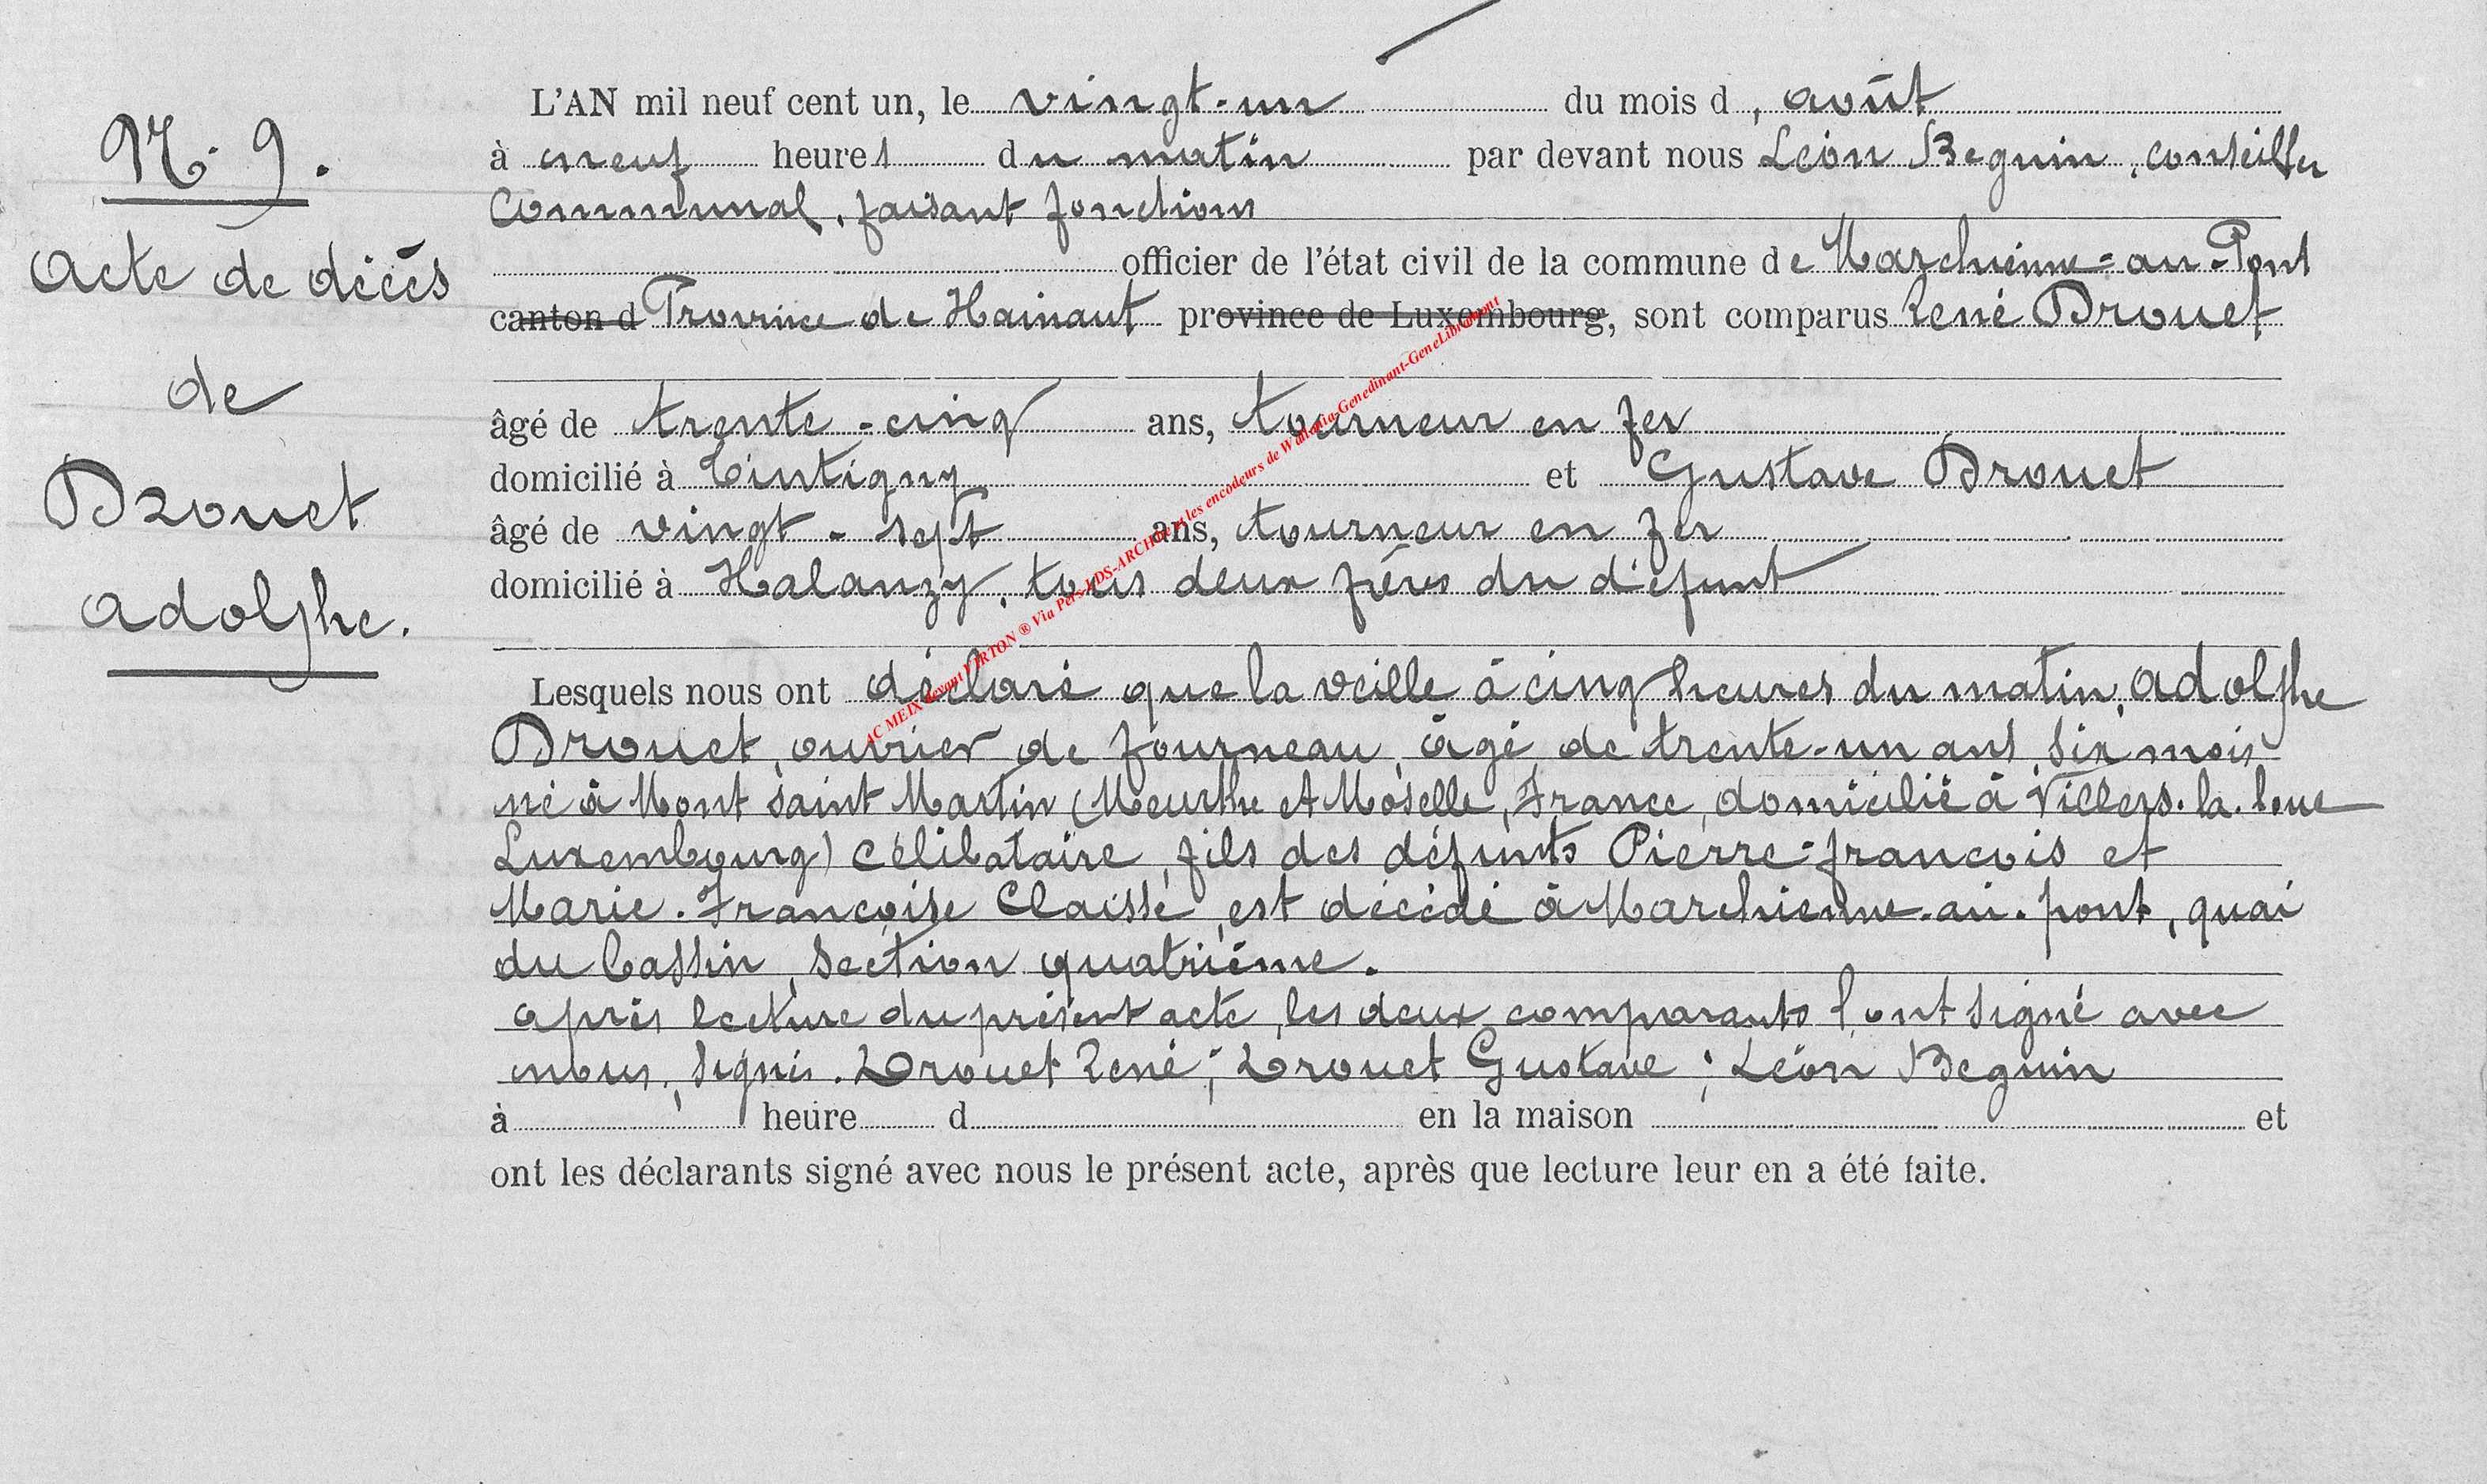 N. 9.
Acte de décès
de
Drouet
Adolphe.
L'AN mil neuf cent un, le vingt-un du mois d, août
à neuf heures du matin par devant nous Léon Beguin, conseiller
Communal, faisant fonctions
officier de l'état civil de la commune de Marchienne-au-Pont
canton d Province de Hainaut province de Luxembourg, sont comparus René Drouet
âgé de trente-cinq ans, tourneur en fer
domicilié à Tintigny et Gustave Drouet
âgé de vingt-sept ans, tourneur en fer
domicilié à Halanzy, tous deux frères du défunt
Lesquels nous ont déclaré que la veille à cinq heures du matin, Adolphe
Drouet, ouvrier de fourneau, âgé de trente-un ans, six mois
né à Mont Saint Martin (Meurthe et Moselle, France, domicilié à Villers-la-loue
Luxembourg) célibataire, fils des défunts Pierre-francois et
Marie-Françoise Claisse, est décédé à Marchienne-au-pont, quai
du bassin, section quatrième.
après lecture du présent acte, les deux comparants l'ont signé avec
nous, signés. Drouet René; Drouet Gustave; Léon Beguin
à heure d en la maison et
ont les déclarants signé avec nous le présent acte, après que lecture leur en a été faite.
AC MEIX devant VIRTON ® Via Pers-LDS-ARCHive et les encodeurs de Wallonia-Genedinant-GeneLibramont